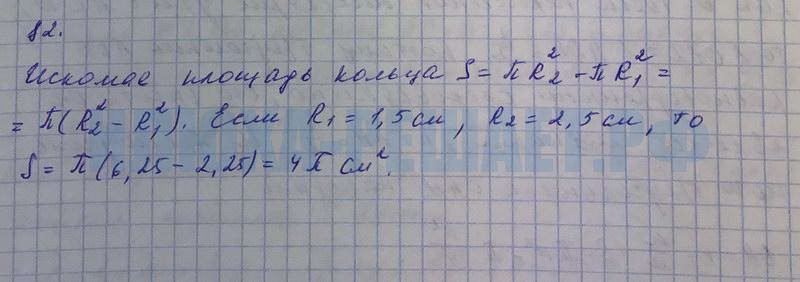 82.
Искомая площадь кольца S = πR₂² - πR₁² =
= π(R₂² - R₁²). Если R₁ = 1,5 см, R₂ = 2,5 см, то
S = π(6,25 - 2,25) = 4π см².